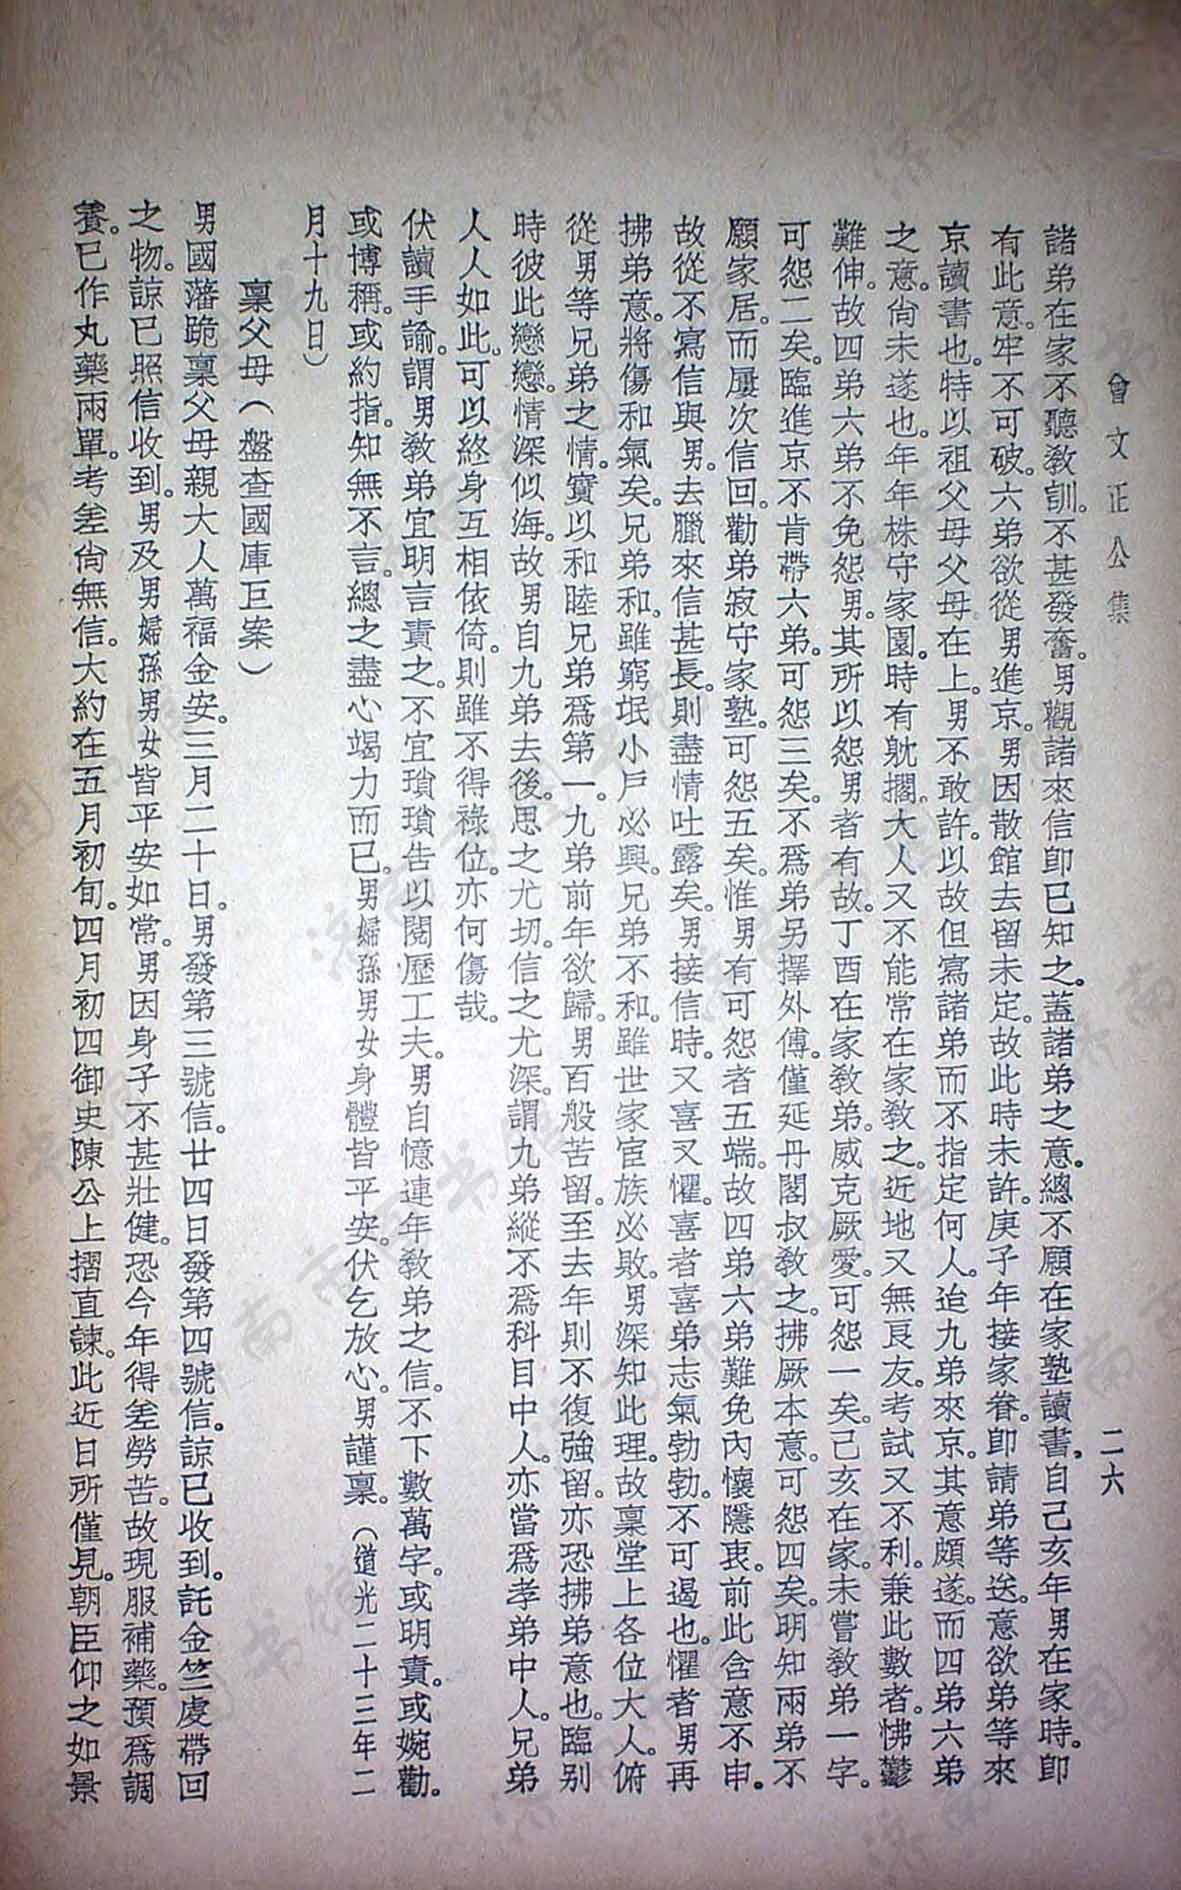 曾文正公集
二六
諸弟在家不聽教訓。不甚發奮。男觀諸來信卽已知之。蓋諸弟之意。總不願在家塾讀書。自己亥年男在家時。卽
有此意。牢不可破。六弟欲從男進京。男因散館去留未定。故此時未許。庚子年接家眷。卽請弟等送。意欲弟等來
京讀書也。特以祖父母父母在上。男不敢許。以故但寫諸弟而不指定何人。迨九弟來京。其意頗遂。而四弟六弟
之意。尙未遂也。年年株守家園。時有躭擱。大人又不能常在家教之。近地又無良友。考試又不利。兼此數者。怫鬱
難伸。故四弟六弟不免怨男。其所以怨男者有故。丁酉在家教弟。威克厥愛。可怨一矣。己亥在家。未嘗教弟一字。
可怨二矣。臨進京不肯帶六弟。可怨三矣。不爲弟另擇外傅。僅延丹閣叔教之。拂厥本意。可怨四矣。明知兩弟不
願家居。而屢次信回。勸弟寂守家塾。可怨五矣。惟男有可怨者五端。故四弟六弟難免內懷隱衷。前此含意不申。
故從不寫信與男。去臘來信甚長。則盡情吐露矣。男接信時。又喜又懼。喜者喜弟志氣勃勃。不可遏也。懼者男再
拂弟意。將傷和氣矣。兄弟和。雖窮氓小戶必興。兄弟不和。雖世家宦族必敗。男深知此理。故稟堂上各位大人。俯
從男等兄弟之情。實以和睦兄弟爲第一。九弟前年欲歸。男百般苦留。至去年則不復強留。亦恐拂弟意也。臨别
時彼此戀戀。情深似海。故男自九弟去後。思之尤切。信之尤深。謂九弟縱不爲科目中人。亦當爲孝弟中人。兄弟
人人如此。可以終身互相依倚。則雖不得祿位。亦何傷哉。
伏讀手諭。謂男教弟宜明言責之。不宜瑣瑣告以閱歷工夫。男自憶連年教弟之信。不下數萬字。或明責。或婉勸。
或博稱。或約指。知無不言。總之盡心竭力而已。男婦孫男女身體皆平安。伏乞放心。男謹稟。（道光二十三年二
月十九日）
稟父母（盤查國庫巨案）
男國藩跪稟父母親大人萬福金安。三月二十日。男發第三號信。廿四日發第四號信。諒已收到。託金竺虔帶回
之物。諒已照信收到。男及男婦孫男女皆平安如常。男因身子不甚壯健。恐今年得差勞苦。故現服補藥。預爲調
養。已作丸藥兩單。考差尙無信。大約在五月初旬。四月初四御史陳公上摺直諫。此近日所僅見。朝臣仰之如景